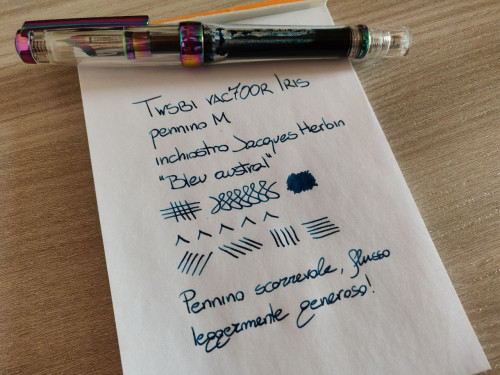 TWSBI VAC700R IRIS
pennino M
inchiostro Jacques Herbin
"Bleu austral"
Pennino scorrevole, flusso
leggermente generoso!